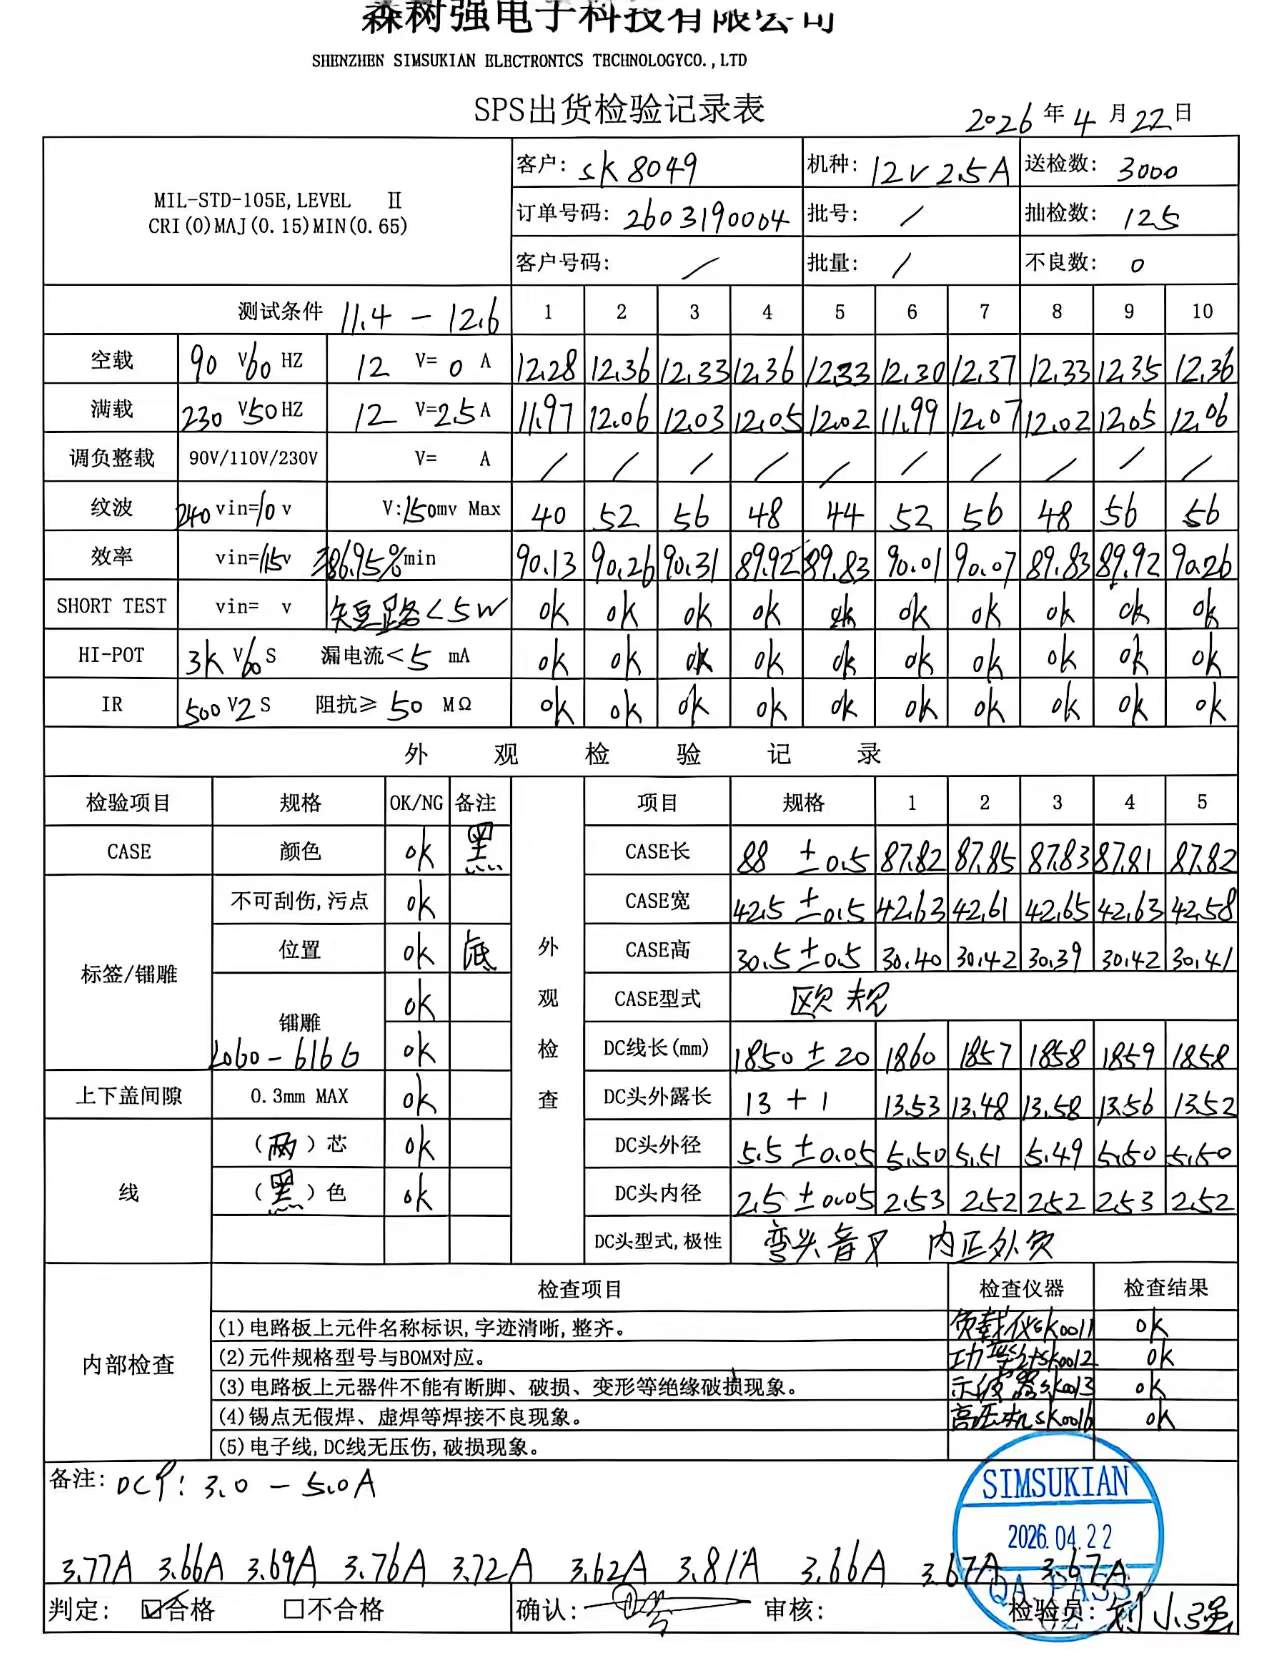 森树强电子科技有限公司
SHENZHEN SIMSUKIAN ELECTRONTCS TECHNOLOGYCO.,LTD
SPS出货检验记录表
2026 年 4 月 22 日
MIL-STD-105E,LEVEL Ⅱ
CRI(0)MAJ(0.15)MIN(0.65)
客户: SK8049 机种: 12V 2.5A 送检数: 3000
订单号码: 2603190004 批号: / 抽检数: 125
客户号码: / 批量: / 不良数: 0
测试条件 11.4 - 12.6 1 2 3 4 5 6 7 8 9 10
空载 90 V60 HZ 12 V= 0 A 12.28 12.36 12.33 12.36 12.33 12.30 12.37 12.33 12.35 12.36
满载 230 V50 HZ 12 V=2.5 A 11.97 12.06 12.03 12.05 12.02 11.99 12.07 12.02 12.05 12.06
调负整载 90V/110V/230V V= A / / / / / / / / / /
纹波 240 vin=10 v V:150mv Max 40 52 56 48 44 52 56 48 56 56
效率 vin=115v ≥86.95%min 90.13 90.26 90.31 89.92 89.83 90.01 90.07 89.83 89.92 90.26
SHORT TEST vin= v 短路<5W ok ok ok ok ok ok ok ok ok ok
HI-POT 3K V60 S 漏电流<5 mA ok ok ok ok ok ok ok ok ok ok
IR 500 V2 S 阻抗≥ 50 MΩ ok ok ok ok ok ok ok ok ok ok
外观检验记录
检验项目 规格 OK/NG 备注 项目 规格 1 2 3 4 5
CASE 颜色 ok 黑 CASE长 88 ±0.5 87.82 87.85 87.83 87.81 87.82
不可刮伤,污点 ok CASE宽 42.5 ±0.5 42.63 42.61 42.65 42.63 42.58
标签/镭雕 位置 ok 底 外观检查 CASE高 30.5±0.5 30.40 30.42 30.39 30.42 30.41
镭雕 ok CASE型式 欧规
2060-616G ok DC线长(mm) 1850±20 1860 1857 1858 1859 1858
上下盖间隙 0.3mm MAX ok DC头外露长 13 + 1 13.53 13.48 13.58 13.56 13.52
(两)芯 ok DC头外径 5.5±0.05 5.50 5.51 5.49 5.50 5.50
线 (黑)色 ok DC头内径 2.5±0.05 2.53 2.52 2.52 2.53 2.52
DC头型式,极性 弯头音叉 内正外负
内部检查 检查项目 检查仪器 检查结果
(1)电路板上元件名称标识,字迹清晰,整齐。 负载仪SK0011 ok
(2)元件规格型号与BOM对应。 功率计SK0012 ok
(3)电路板上元器件不能有断脚、破损、变形等绝缘破损现象。 示波器SK0013 ok
(4)锡点无假焊、虚焊等焊接不良现象。 高压机SK0016 ok
(5)电子线,DC线无压伤,破损现象。
备注: OCP: 3.0 - 5.0A
SIMSUKIAN
2026.04.22
QA PASS
02
3.77A 3.66A 3.69A 3.76A 3.72A 3.62A 3.81A 3.66A 3.67A 3.67A
判定: ☑合格 □不合格 确认: 审核: 检验员: 刘小强